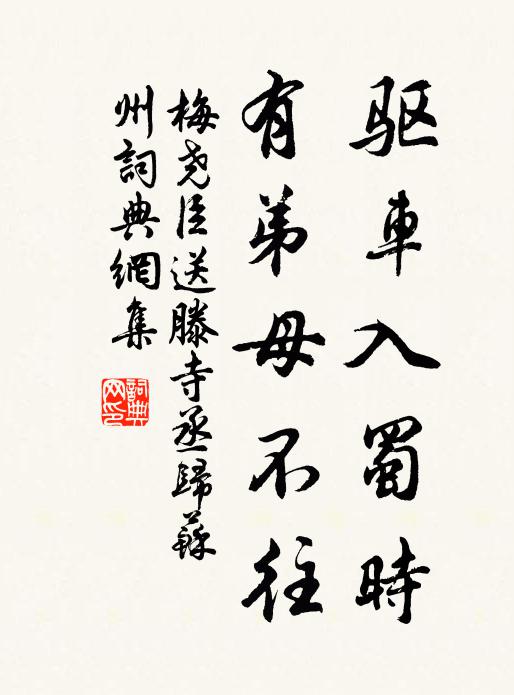 驱車入蜀時
有弟母不往
梅尧臣送滕寺丞歸蘇
州詞典網集
詞典网印